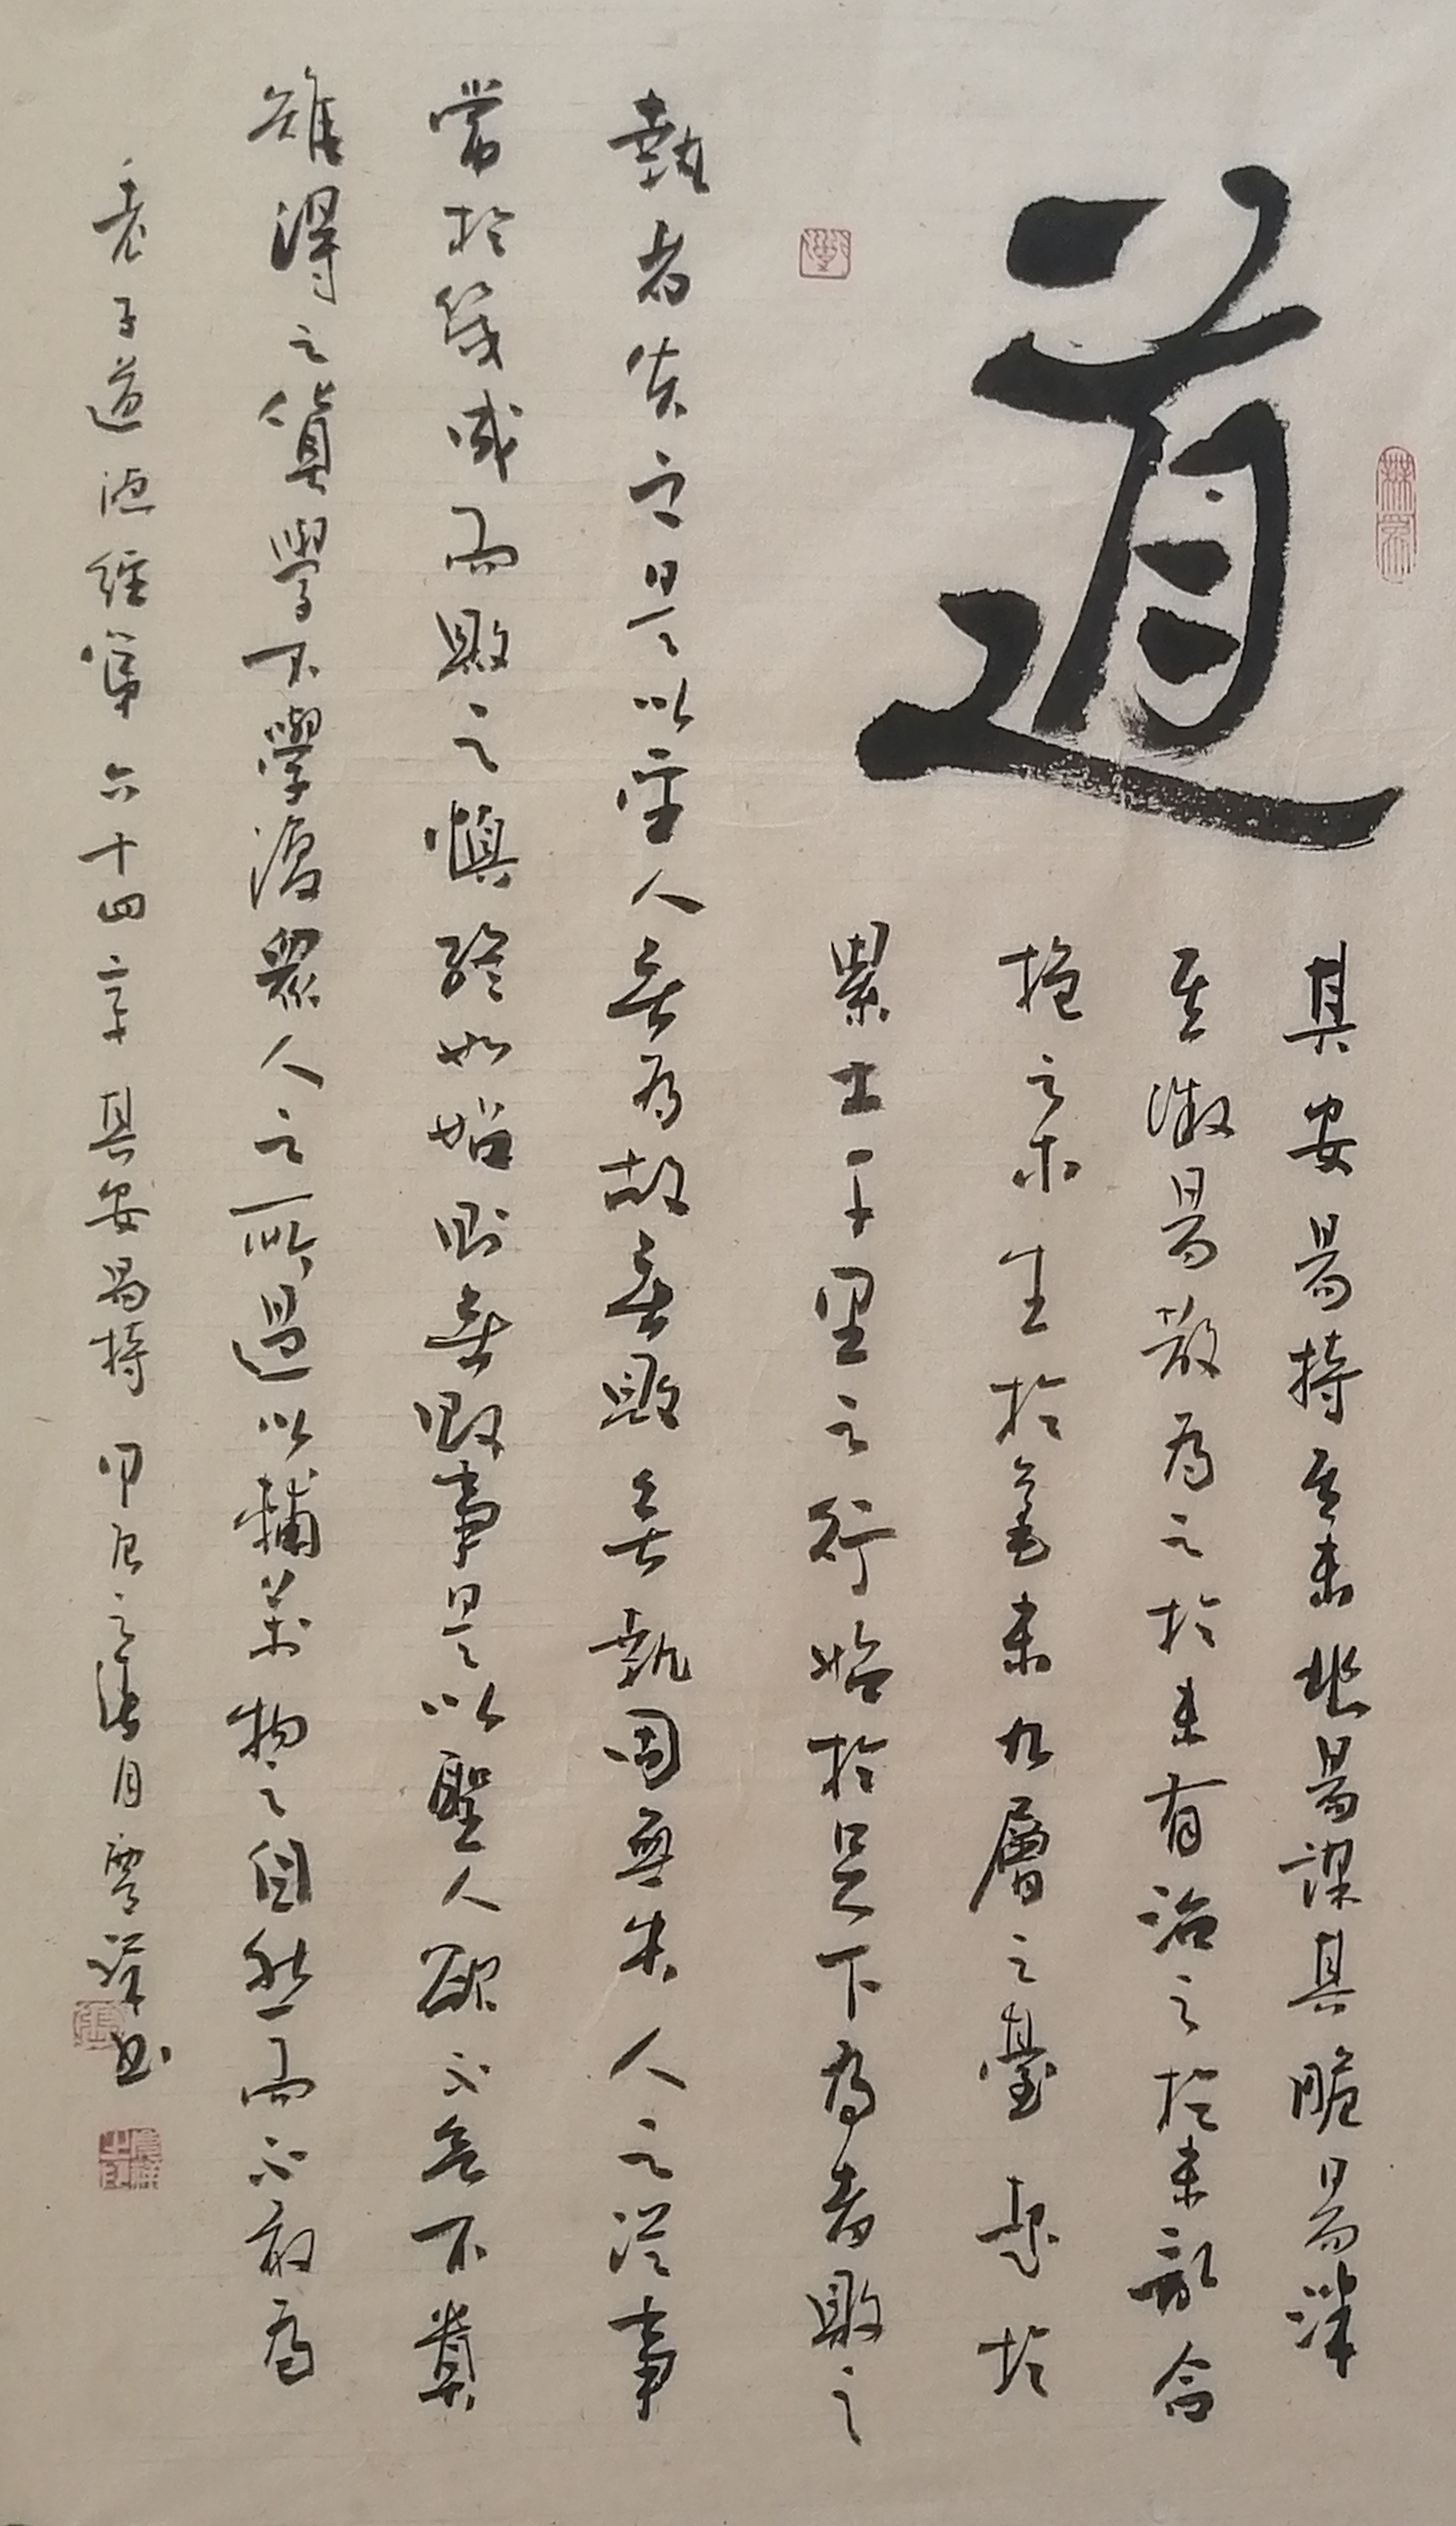 道
無為
其安易持其未兆易謀其脆易泮
其微易散為之於未有治之於未亂合
抱之木生於毫末九層之臺起於
累土千里之行始於足下為者敗之
執者失之是以聖人無為故無敗無執固無失人之從事
常於幾成而敗之慎終如始則無敗事是以聖人欲不欲不貴
難得之貨學不學復眾人之所過以輔萬物之自然而不敢為
老子道德經第六十四章其安易持甲辰之月祥書